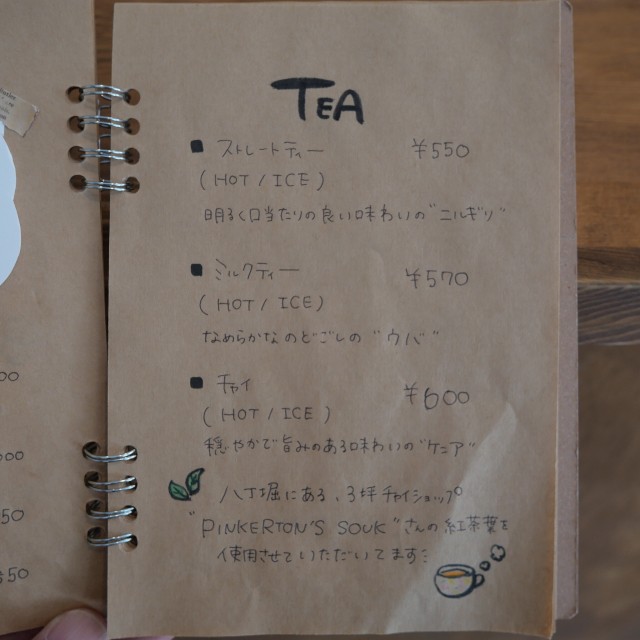 TEA
■ ストレートティー ¥550
(HOT / ICE)
明るく口当たりの良い味わいの"ニルギリ"
■ ミルクティー ¥570
(HOT / ICE)
なめらかなのどごしの "ウバ"
■ チャイ ¥600
(HOT / ICE)
穏やかで旨みのある味わいの"ケニア"
八丁堀にある、3坪チャイショップ
"PINKERTON'S SOUK"さんの紅茶葉を
使用させていただいてます
00
000
50
$50